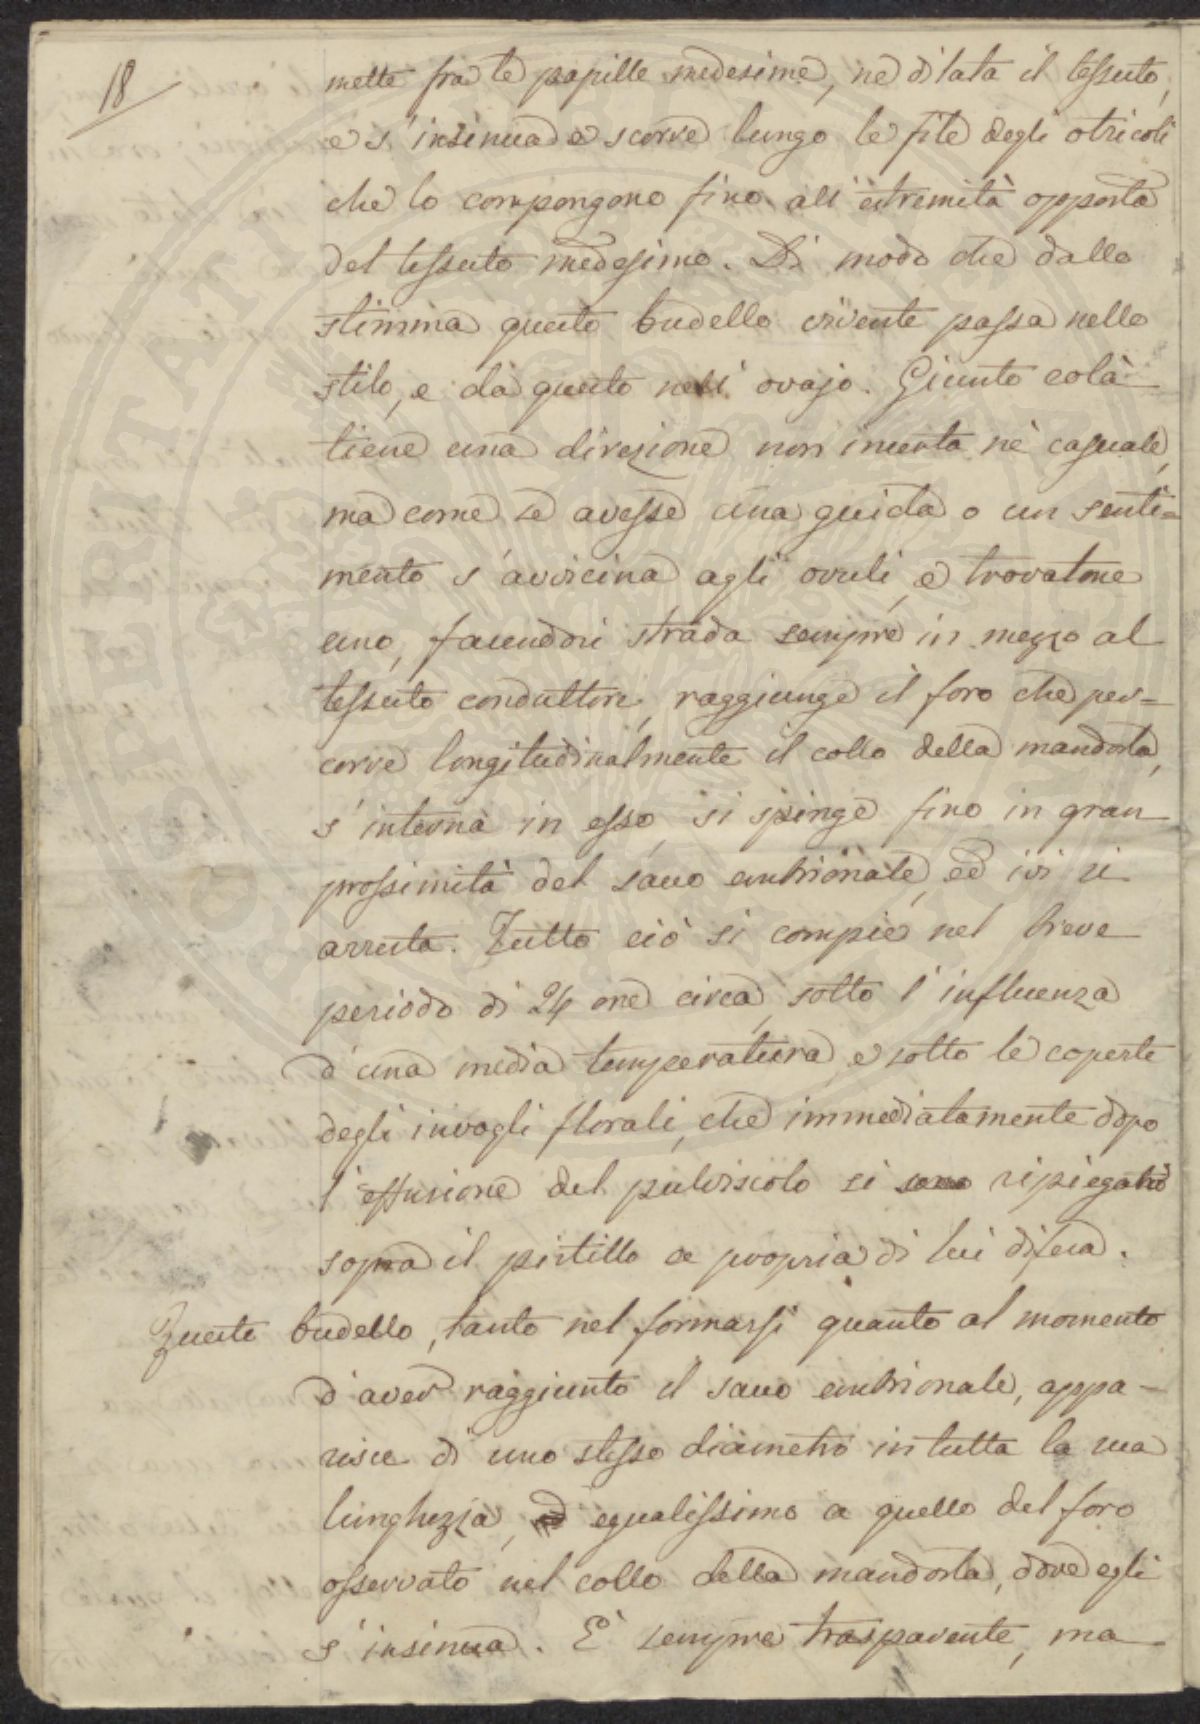 18
mette fra le papille medesime, ne dilata il tessuto,
e s'insinua e scorre lungo le file degli otricoli
che lo compongono fino all'estremità opposta
del tessuto medesimo. Di modo che dallo
stimma questo budello vivente passa nello
stilo, e da questo nell'ovajo. Giunto colà
tiene una direzione non incerta nè casuale,
ma come se avesse una guida o un senti=
mento s'avvicina agli ovuli, e trovatone
uno, facendosi strada sempre in mezzo al
tessuto conduttore, raggiunge il foro che per=
corre longitudinalmente il collo della mandorla,
s'interna in esso, si spinge fino in gran
prossimità del sacco embrionale, ed ivi si
arresta. Tutto ciò si compie nel breve
periodo di 24 ore circa, sotto l'influenza
d'una media temperatura, e sotto le coperte
degli invogli florali, che immediatamente dopo
l'effusione del pulviscolo si sono ripiegati
sopra il pistillo a propria di lui difesa.
Questo budello, tanto nel formarsi quanto al momento
d'aver raggiunto il sacco embrionale, appa-
risce di uno stesso diametro in tutta la sua
lunghezza, ed egualissimo a quello del foro
osservato nel collo della mandorla, dove egli
s'insinua. E' sempre trasparente, ma
PROSPERITATI PUBLICAE